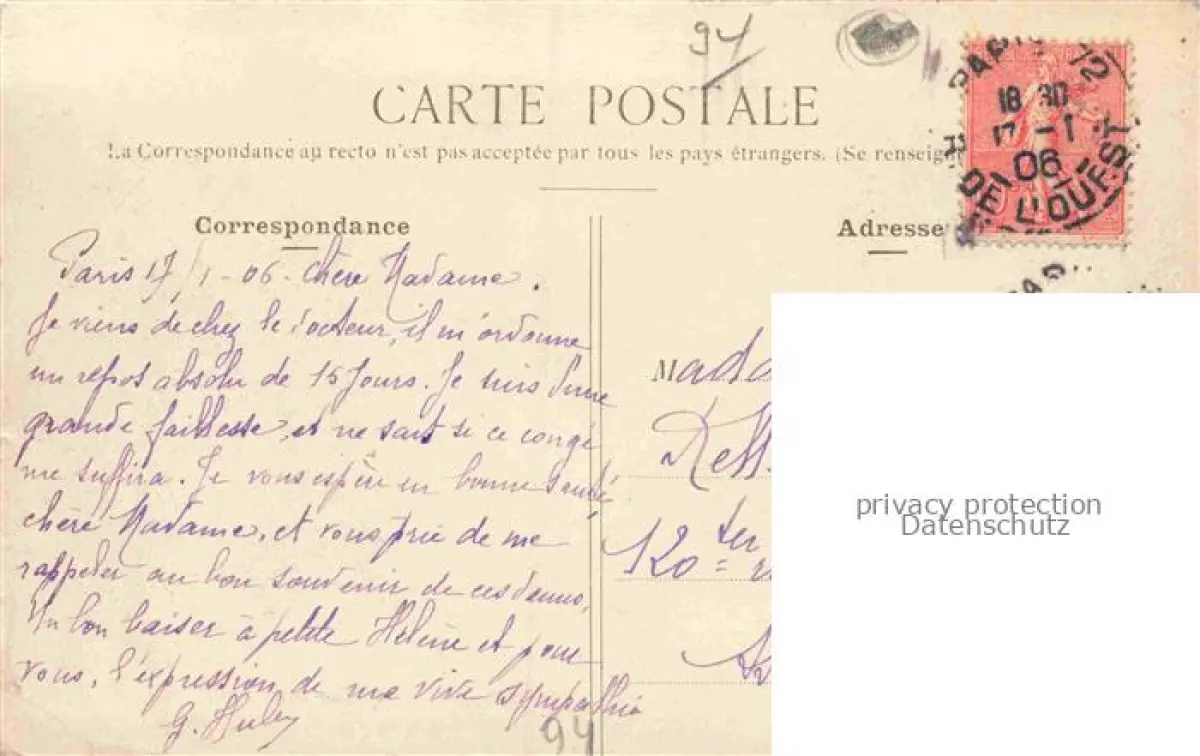 94
CARTE POSTALE
La Correspondance au recto n'est pas acceptée par tous les pays étrangers. (Se renseig
PARIS 72
18 30
17 - 1
06
DE L'OUEST
Correspondance
Adresse
PAR
Paris 17/1-06- Chère Madame.
Je viens de chez le docteur, il m'ordonne
un repos absolu de 15 Jours. Je suis d'une
grande faiblesse, et ne sait si ce congé
me suffira. Je vous espère en bonne santé
chère Madame, et vous prie de me
rappeler au bon souvenir de ces dames,
Un bon baiser à petite Hélène et pour
vous, l'expression de ma vive sympathie
G.
Mada
120 ter
94
privacy protection
Datenschutz